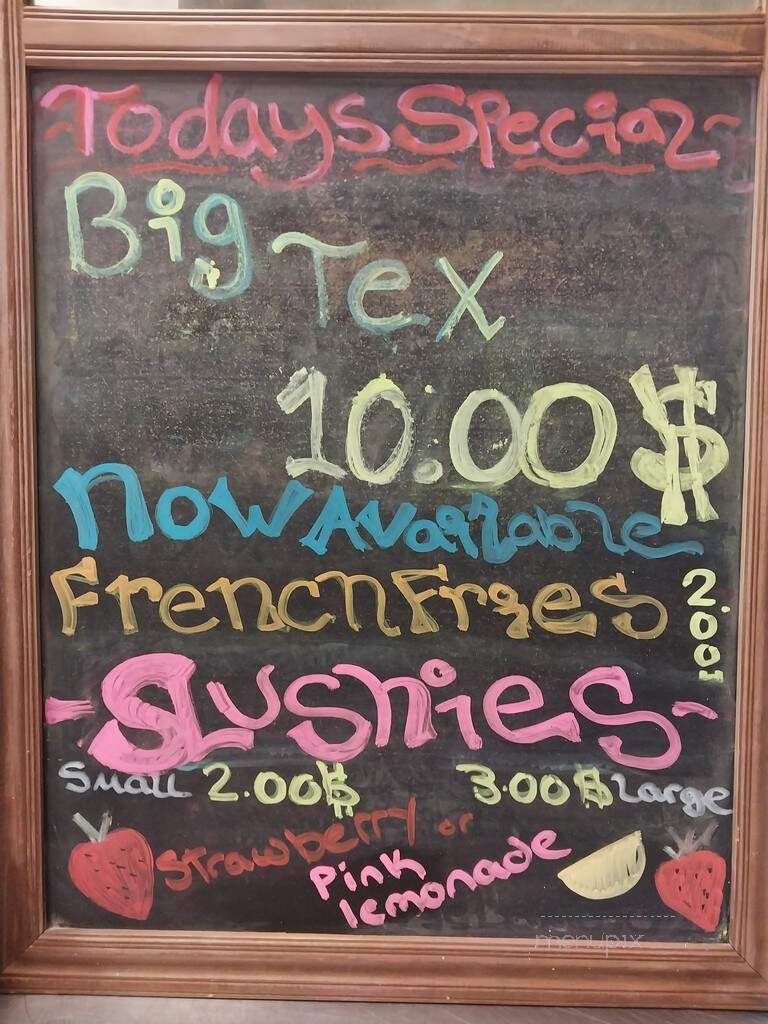 ~Todays Special~
Big Tex
10.00$
Now Available
French Fries 2.00
-Slushies-
Small 2.00$ 3.00$ Large
Strawberry or
Pink
lemonade
menupix